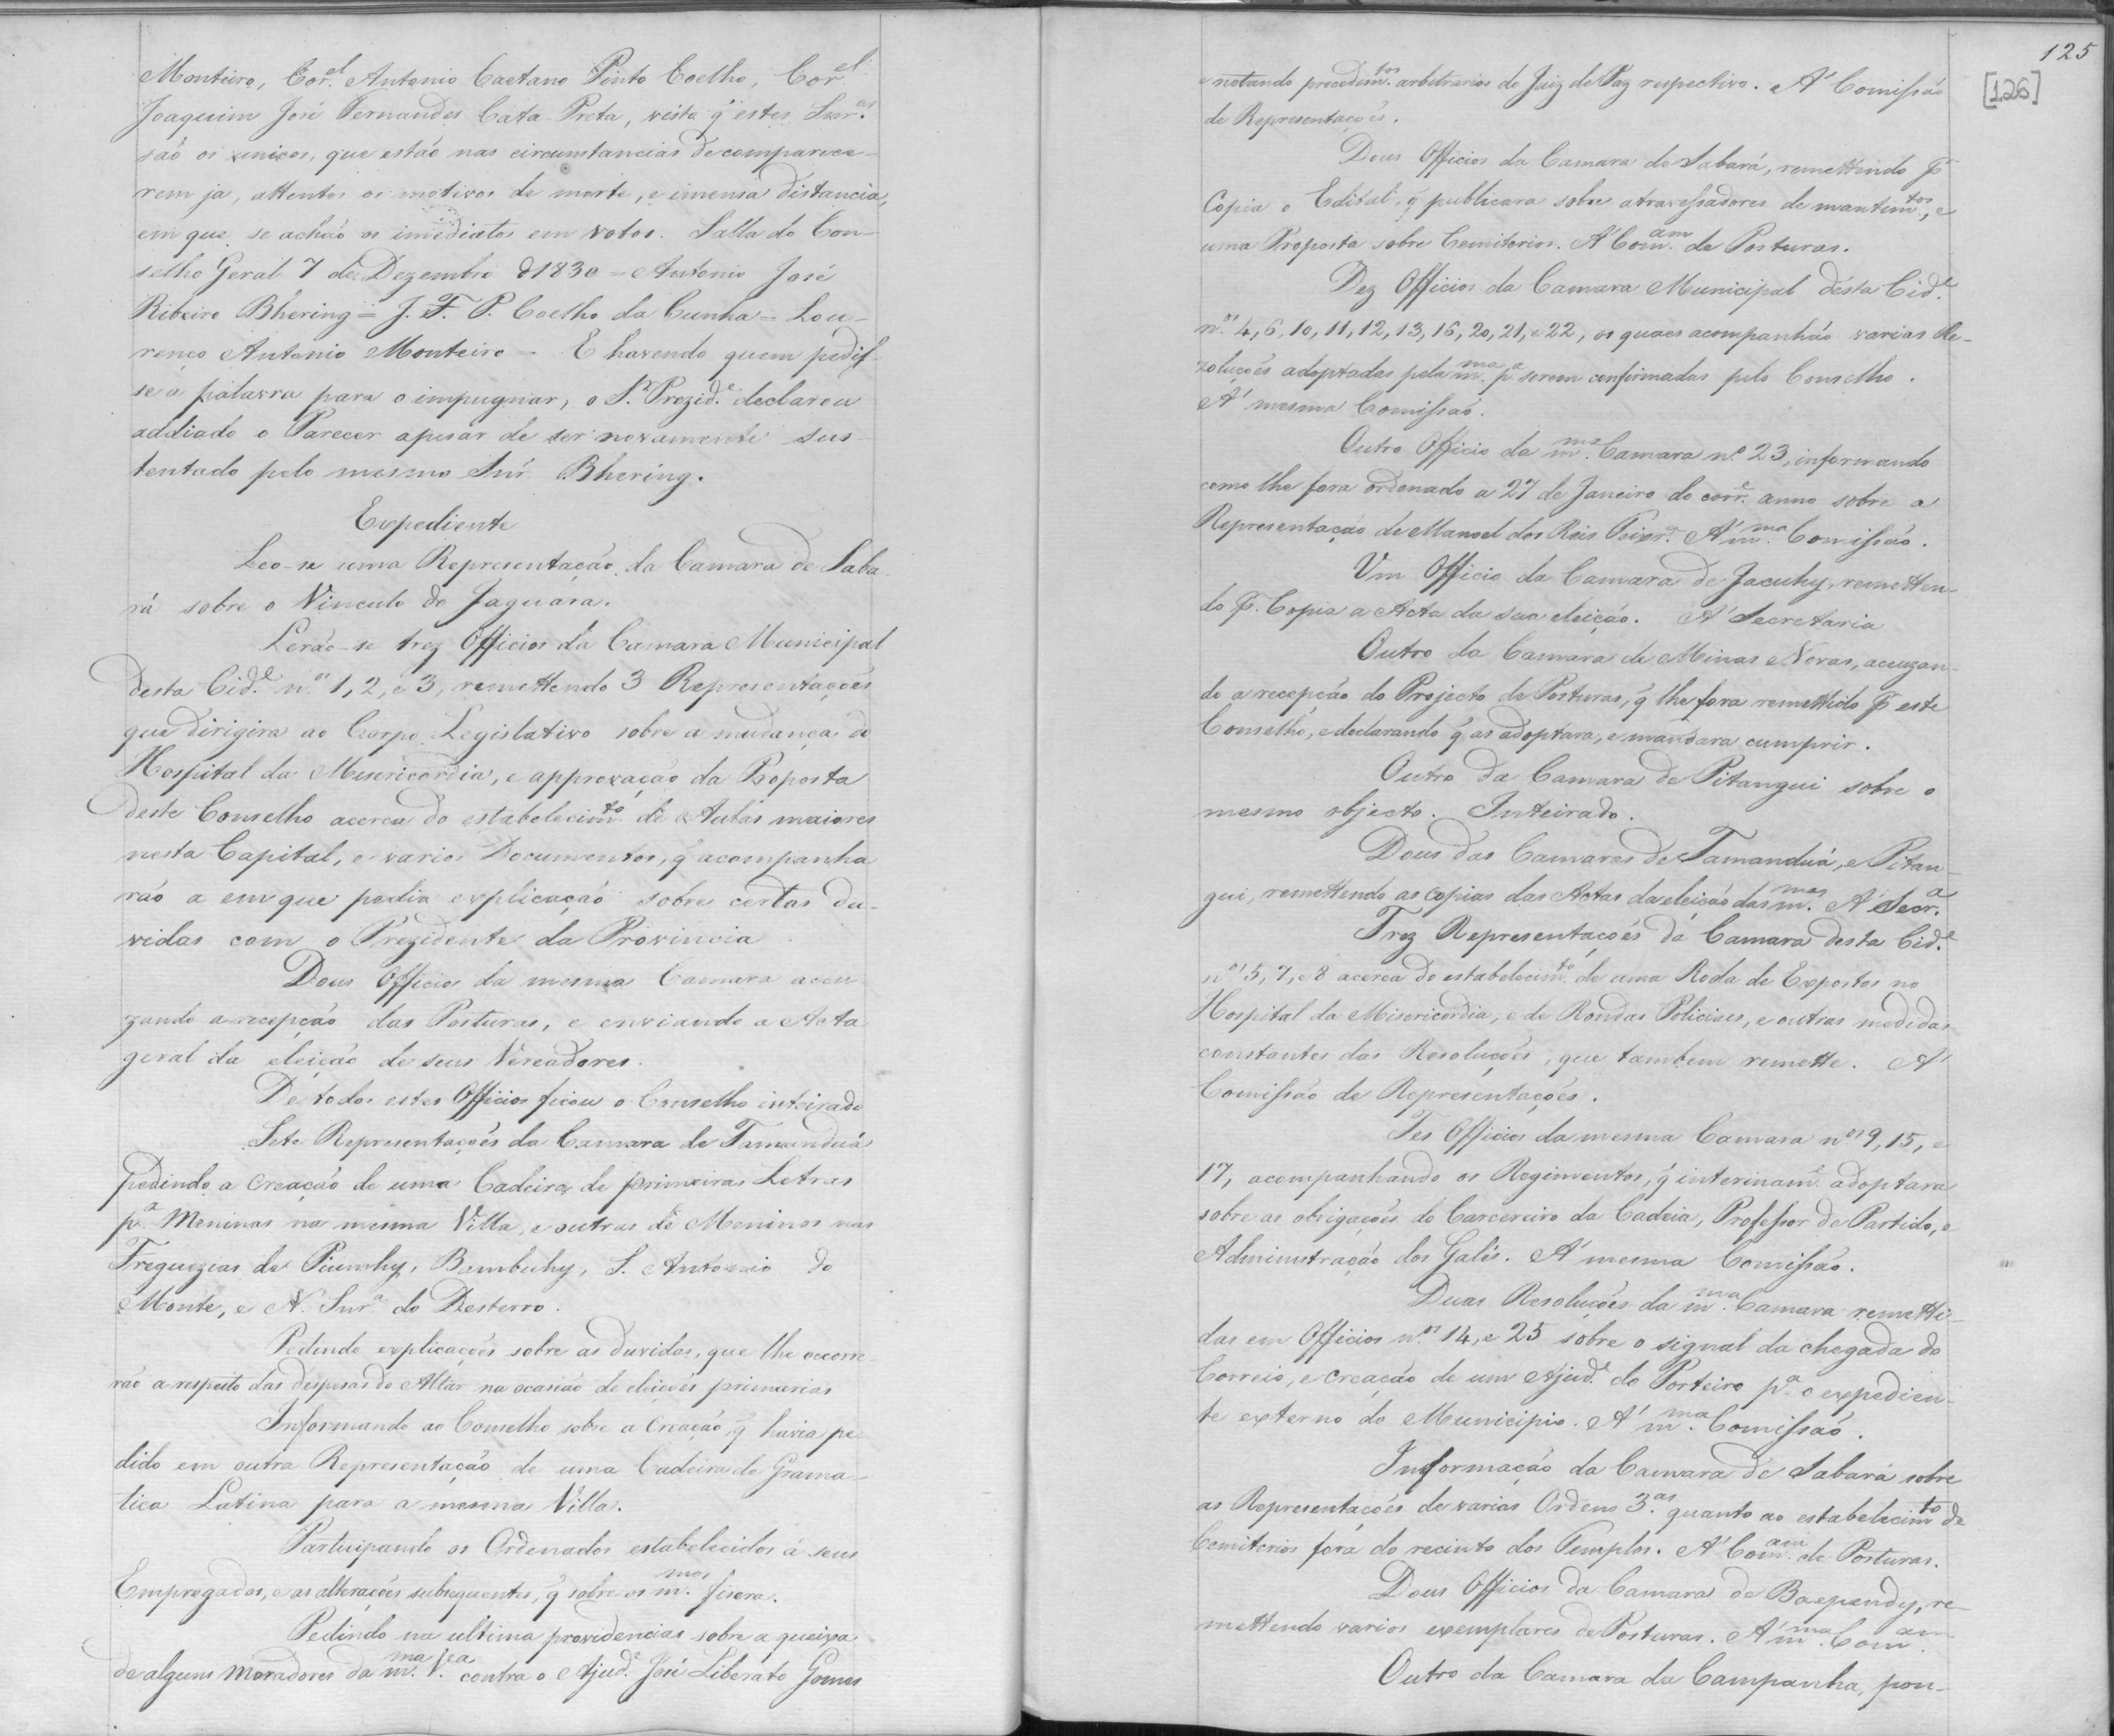 Monteiro, Cor.el Antonio Caetano Pinto Coelho, Cor.el
Joaquim José Fernandes Cata Preta, visto q̃ estes Snr.es
são os unicos, que estão nas circunstancias de comparece-
rem ja, attentos os motivos de morte, e imensa distancia,
em que se achão os imediatos em votos. Salla do Con-
selho Geral 7 de Dezembro d 1830 = Antonio José
Ribeiro Bhering = J. F. P. Coelho da Cunha = Lou-
renço Antonio Monteiro = E havendo quem pedis-
se a palavra para o impugnar, o Sr. Prezid.e declarou
addiado o Parecer apesar de ser novamente sus-
tentado pelo mesmo Snr. Bhering.
Expediente
Leo-se uma Representação da Camara de Saba-
rá sobre o Vinculo do Jaguara.
Lerão-se trez Officios da Camara Municipal
desta Cid.e n.os 1, 2, e 3, remettendo 3 Representações
que dirigira ao Corpo Legislativo sobre a mudança do
Hospital da Misericordia, e approvação da Proposta
deste Conselho acerca do estabelecim.to de Aulas maiores
nesta Capital, e varios Documentos, q̃ acompanha
rão a em que pedia explicação sobre certas du-
vidas com o Prezidente da Provincia.
Dous Officios da mesma Camara accu
zando a recepção das Posturas, e enviando a Acta
geral da eleição de seus Vereadores.
De todos estes Officios ficou o Conselho inteirado
Sete Representações da Camara de Tamanduá
pedindo a creação de uma Cadeira de primeiras Letras
p.a Meninas na mesma Villa, e outras de Meninos nas
Freguezias de Piumhy, Bambuhy, S. Antonio do
Monte, e N. Snr.a do Desterro.
Pedindo explicações sobre as duvidas, que lhe occorre
rão a respeito das despesas do Altar na ocasião de eleições primarias
Informando ao Conselho sobre a creação, q̃ havia pe
dido em outra Representação de uma Cadeira de Grama-
tica Latina para a mesma Villa.
Participando os Ordenados estabelecidos á seus
Empregados, e as alterações subsequentes, q̃ sobre os m.mos fisera.
Pedindo na ultima providencias sobre a queixa
de alguns Moradores da m.ma V.a contra o Ajud.e José Liberato Gomes
125
[126]
e notando procedim.tos arbitrarios do Juiz de Paz respectivo. A' Comissão
de Representações.
Dous Officios da Camara de Sabará, remettindo p.
Copia o Edital, q̃ publicara sobre atravessadores de mantim.tos, e
uma Proposta sobre Cemiterios. A' Com.am de Posturas.
Dez Officios da Camara Municipal désta Cid.e
n.os 4, 6, 10, 11, 12, 13, 16, 20, 21, e 22, os quaes acompanhão varias Re-
zoluções adoptadas pela m.ma p.a serem confirmadas pelo Conselho.
A' mesma Comissão.
Outro Officio da m.ma Camara n.o 23, informando
como lhe fora ordenado a 27 de Janeiro do corr.e anno sobre a
Representação de Manoel dos Reis A' m.ma Comissão.
Um Officio da Camara de Jacuhy, remetten-
do p. Copia a Acta da sua eleição. A' Secretaria
Outro da Camara de Minas Novas, accuzan-
do a recepção do Projecto de Posturas, q̃ lhe fora remettido p. este
Conselho, e declarando q̃ as adoptara, e mandara cumprir.
Outro da Camara de Pitangui sobre o
mesmo objecto. Inteirado.
Dous das Camaras de Tamanduá, e Pitan-
gui, remettendo as copias das Actas da eleição das m.mas A' Secr.a
Trez Representações da Camara desta Cid.e
n.os 5, 7, e 8 acerca do estabelecim.to de uma Roda de Expostos no
Hospital da Misericordia, e de Rondas Policiaes, e outras medidas
constantes das Resoluções, que tambem remette. A'
Comissão de Representações.
Tes Officios da mesma Camara n.os 9, 15, e
17, acompanhando os Regimentos, q̃ interinam.e adoptara
sobre as obrigações do Carcereiro da Cadeia, Professor de Partido, e
Administração dos Galés. A' mesma Comissão.
Duas Resoluções da m.ma Camara remetti-
das em Officios n.os 14, e 25 sobre o signal da chegada do
Correio, e creação de um Ajud.e do Porteiro p.a o expedien-
te externo do Municipio. A' m.ma Comissão.
Informação da Camara de Sabará sobre
as Representações de varias Ordens 3.as quanto ao estabelecim.to de
Cemiterios fóra do recinto dos Templos. A' Com.am de Posturas.
Dous Officios da Camara de Baependy, re-
mettendo varios exemplares de Posturas. A' m.ma Com.am
Outro da Camara da Campanha, pon-